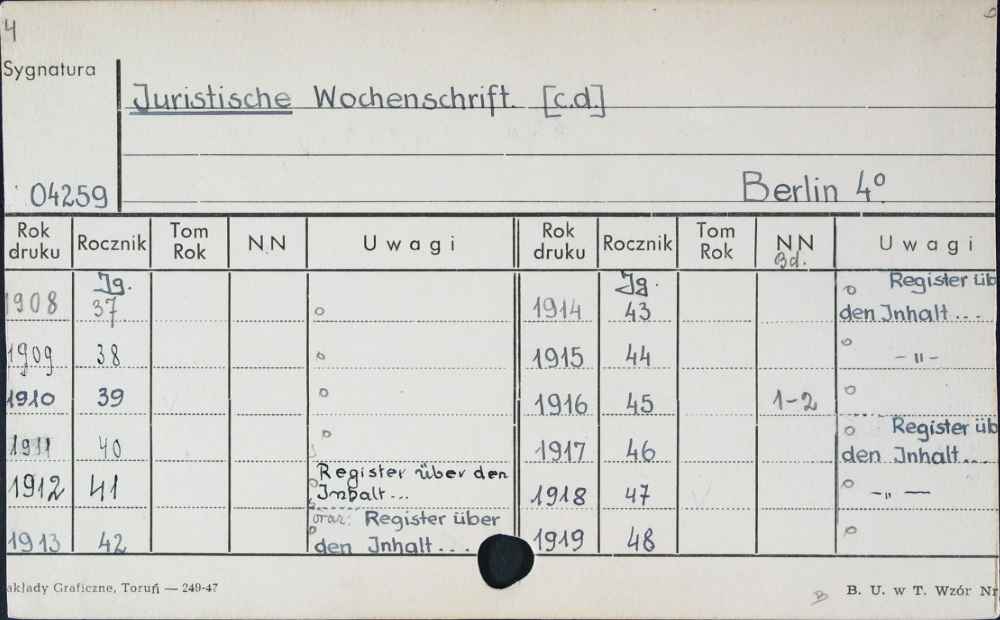 4
Sygnatura
Juristische Wochenschrift. [c.d.]
04259
Berlin 4º.
Rok druku Rocznik Tom Rok NN Uwagi Rok druku Rocznik Tom Rok NN Bd. Uwagi
Jg. Jg. Register üb
1908 37 o 1914 43 o den Inhalt...
1909 38 o 1915 44 o -"-
1910 39 o 1916 45 1-2 o
1911 40 o 1917 46 o Register üb den Inhalt...
1912 41 Register über den Inhalt... 1918 47 o -"-
1913 42 oraz: Register über den Inhalt... 1919 48 o
akłady Graficzne, Toruń — 249-47
B
B. U. w T. Wzór Nr